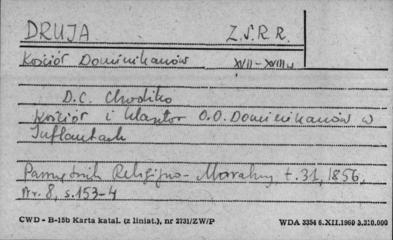 DRUJA Z.S.R.R.
Kościół Dominikanów XVII–XVIII w
D.C. Chodźko
Kościół i klasztor O.O. Dominikanów w
Inflantach
Pamiętnik Religijno-Moralny t.31, 1856,
nr. 8, s.153-4
CWD - B-15b Karta katal. (z liniat.), nr 2731/ZW/P WDA 3354 6.XII.1960 3.210.000